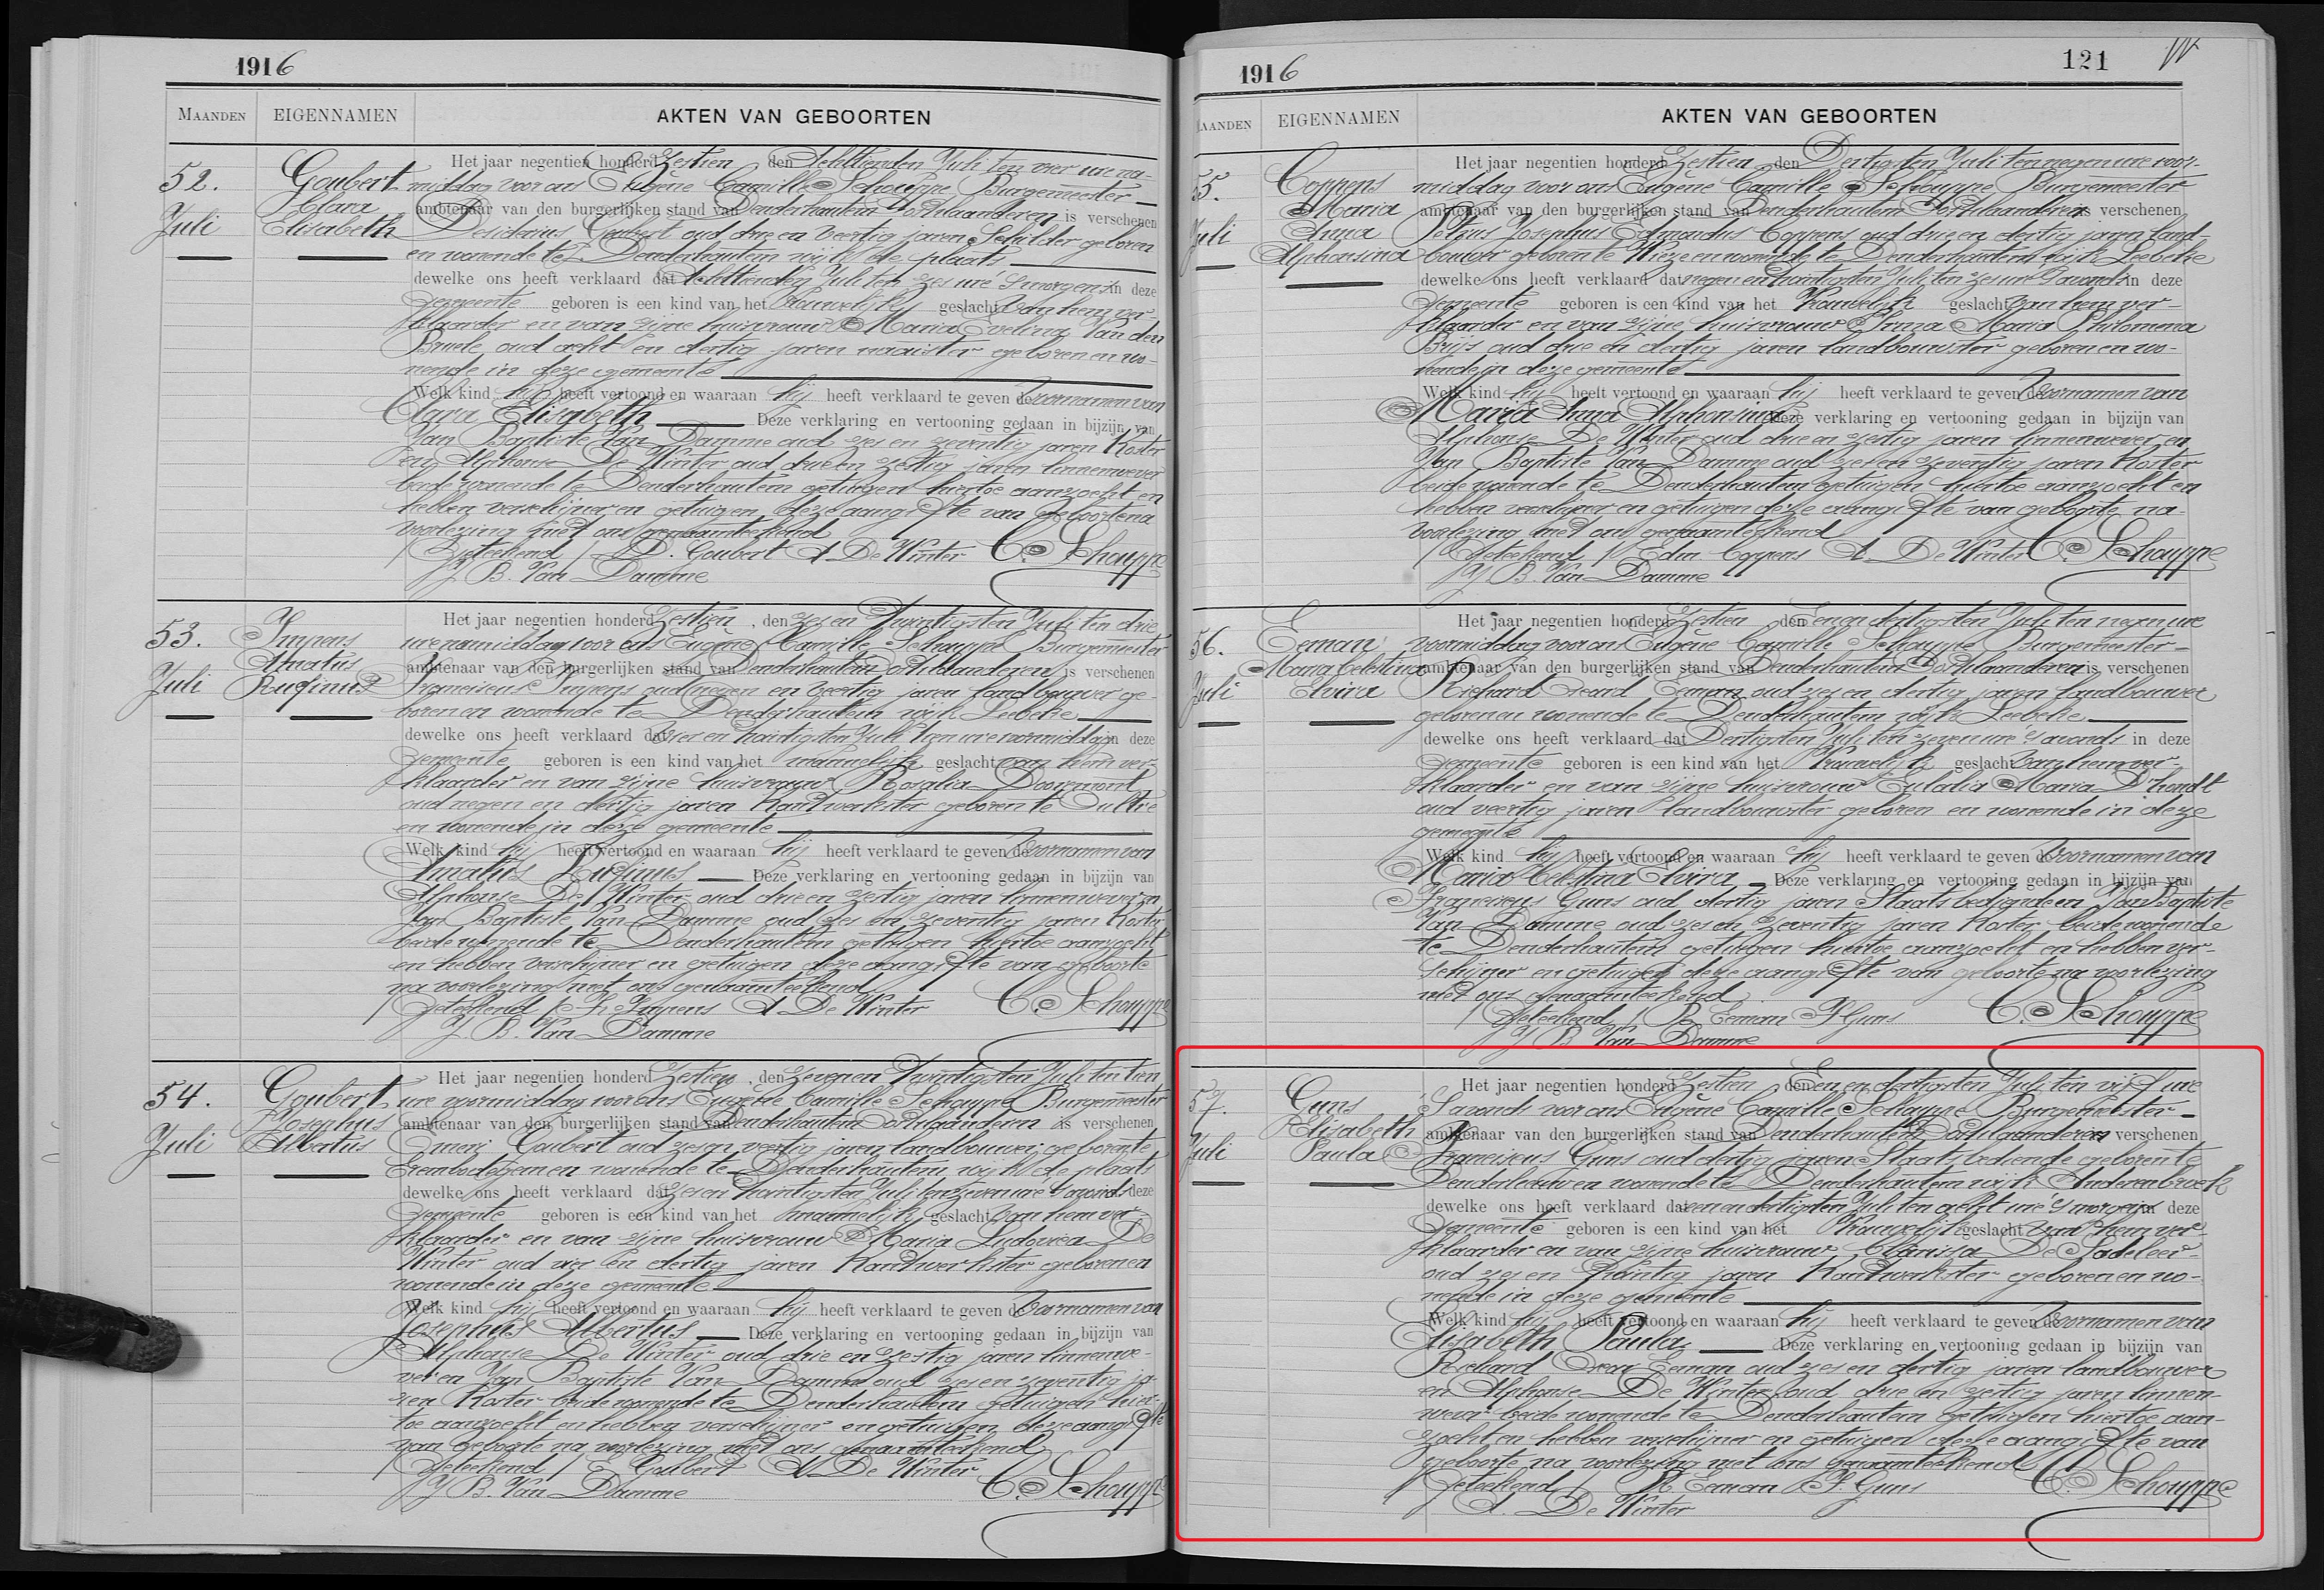 1916
MAANDEN EIGENNAMEN AKTEN VAN GEBOORTEN
52.
Juli
Goubert
Clara
Elisabeth
Het jaar negentien honderd Zestien den Achttienden Juli ten vier ure na-
middag voor ons Eugène Camille Schouppe Burgemeester
ambtenaar van den burgerlijken stand van Denderhautem Oostvlaanderen is verschenen
Desiderius Goubert oud drie en veertig jaren Schilder geboren
en wonende te Denderhautem wijk de plaats
dewelke ons heeft verklaard dat Achttienden Juli ten zes ure 's morgens in deze
gemeente geboren is een kind van het Vrouwelijk geslacht van hem ver-
klaarder en van zijne huisvrouw Maria Evelina Van den
Bruele oud acht en dertig jaren naaister geboren en wo-
nende in deze gemeente
Welk kind hij heeft vertoond en waaraan hij heeft verklaard te geven de Voornamen van
Clara Elisabeth Deze verklaring en vertooning gedaan in bijzijn van
Jan Baptiste Van Damme oud zes en zeventig jaren Koster
en Alphonse De Winter oud drie en zestig jaren linnenwever
beide wonende te Denderhautem getuigen hiertoe aanzocht en
hebben verschijner en getuigen deze aangifte van geboorte na
voorlezing met ons genaamteekend
/ Geteekend / D. Goubert A De Winter C. Schouppe
J. B. Van Damme
53.
Juli
Impens
Amatus
Rufinus
Het jaar negentien honderd Zestien, den zes en Twintigsten Juli ten drie
ure namiddag voor ons Eugène Camille Schouppe Burgemeester
ambtenaar van den burgerlijken stand van Denderhautem Oostvlaanderen is verschenen
Franciscus Impens oud negen en veertig jaren landbouwer ge-
boren en wonende te Denderhautem wijk Leebeke
dewelke ons heeft verklaard dat vier en twintigsten Juli tien ure voormiddag in deze
gemeente geboren is een kind van het mannelijk geslacht van hem ver-
klaarder en van zijne huisvrouw Rosalia Doormont
oud negen en dertig jaren Kantwerkster geboren te Aultre
en wonende in deze gemeente
Welk kind hij heeft vertoond en waaraan hij heeft verklaard te geven de Voornamen van
Amatus Rufinus Deze verklaring en vertooning gedaan in bijzijn van
Alphonse De Winter oud drie en zestig jaren linnenwever en
Jan Baptiste Van Damme oud zes en zeventig jaren Koster
beide wonende te Denderhautem getuigen hiertoe aanzocht
en hebben verschijner en getuigen deze aangifte van geboorte
na voorlezing met ons genaamteekend
/ Geteekend / F. Impens A De Winter C. Schouppe
J. B. Van Damme
54.
Juli
Goubert
Josephus
Albertus
Het jaar negentien honderd Zestien, den zeven en Twintigsten Juli ten tien
ure voormiddag voor ons Eugène Camille Schouppe Burgemeester
ambtenaar van den burgerlijken stand van Denderhautem Oostvlaanderen is verschenen
Omer Goubert oud zes en veertig jaren landbouwer geboren te
Erembodegem en wonende te Denderhautem wijk de plaats
dewelke ons heeft verklaard dat zes en twintigsten Juli ten zeven ure 's avonds deze
gemeente geboren is een kind van het mannelijk geslacht van hem ver-
klaarder en van zijne huisvrouw Maria Ludovica De
Winter oud vier en dertig jaren Kantwerkster geboren en
wonende in deze gemeente
Welk kind hij heeft vertoond en waaraan hij heeft verklaard te geven de Voornamen van
Josephus Albertus Deze verklaring en vertooning gedaan in bijzijn van
Alphonse De Winter oud drie en zestig jaren linnenwe-
ver en Jan Baptiste Van Damme oud zes en zeventig ja-
ren Koster beide wonende te Denderhautem getuigen hier-
toe aanzocht en hebben verschijner en getuigen deze aangifte
van geboorte na voorlezing met ons genaamteekend
/ Geteekend / Goubert A De Winter C. Schouppe
J. B. Van Damme
1916 121
MAANDEN EIGENNAMEN AKTEN VAN GEBOORTEN
55.
Juli
Coppens
Maria
Anna
Alphonsina
Het jaar negentien honderd Zestien den Dertigsten Juli ten negen ure voor-
middag voor ons Eugène Camille Schouppe Burgemeester
ambtenaar van den burgerlijken stand van Denderhautem Oostvlaanderen is verschenen
Petrus Josephus Edmondus Coppens oud drie en dertig jaren land-
bouwer geboren te Wieze en wonende te Denderhautem wijk Leebeke
dewelke ons heeft verklaard dat negen en twintigsten Juli ten zes ure 's avonds in deze
gemeente geboren is een kind van het Vrouwelijk geslacht van hem ver-
klaarder en van zijne huisvrouw Anna Maria Philomena
Brijs oud drie en dertig jaren landbouwster geboren en wo-
nende in deze gemeente
Welk kind hij heeft vertoond en waaraan hij heeft verklaard te geven de Voornamen van
Maria Anna Alphonsina Deze verklaring en vertooning gedaan in bijzijn van
Alphonse De Winter oud drie en zestig jaren linnenwever en
Jan Baptiste Van Damme oud zes en zeventig jaren Koster
beide wonende te Denderhautem getuigen hiertoe aanzocht en
hebben verschijner en getuigen deze aangifte van geboorte na-
voorlezing met ons genaamteekend
/ Geteekend / Edm Coppens A. De Winter C. Schouppe
J. B. Van Damme
56.
Juli
Eeman
Maria Celestina
Elvira
Het jaar negentien honderd Zestien den Een en dertigsten Juli ten negen ure
voormiddag voor ons Eugène Camille Schouppe Burgemeester
ambtenaar van den burgerlijken stand van Denderhautem Oostvlaanderen is verschenen
Richard Eeman oud zes en dertig jaren landbouwer
geboren en wonende te Denderhautem wijk Leebeke
dewelke ons heeft verklaard dat Dertigsten Juli ten zeven ure 's avonds in deze
gemeente geboren is een kind van het Vrouwelijk geslacht van hem ver-
klaarder en van zijne huisvrouw Eulalia Maria D'hondt
oud veertig jaren landbouwster geboren en wonende in deze
gemeente
Welk kind hij heeft vertoond en waaraan hij heeft verklaard te geven de Voornamen van
Maria Celestina Elvira Deze verklaring en vertooning gedaan in bijzijn van
Franciscus Guns oud dertig jaren Staatsbediende en Jan Baptiste
Van Damme oud zes en zeventig jaren Koster beide wonende
te Denderhautem getuigen hiertoe aanzocht en hebben ver-
schijner en getuigen deze aangifte van geboorte na voorlezing
met ons genaamteekend
/ Geteekend / R Eeman F Guns C. Schouppe
J. B. Van Damme
57.
Juli
Guns
Elisabeth
Paula
Het jaar negentien honderd Zestien den Een en dertigsten Juli ten vijf ure
'S avonds voor ons Eugène Camille Schouppe Burgemeester
ambtenaar van den burgerlijken stand van Denderhautem Oostvlaanderen verschenen
Franciscus Guns oud dertig jaren Staatsbediende geboren te
Denderleeuw en wonende te Denderhautem wijk Anderenbroek
dewelke ons heeft verklaard dat een en dertigsten Juli ten acht ure 's morgens in deze
gemeente geboren is een kind van het Vrouwelijk geslacht van hem ver-
klaarder en van zijne huisvrouw Clarissa De Sadeleer
oud zes en twintig jaren Kantwerkster geboren en wo-
nende in deze gemeente
Welk kind hij heeft vertoond en waaraan hij heeft verklaard te geven de Voornamen van
Elisabeth Paula Deze verklaring en vertooning gedaan in bijzijn van
Richard Eeman oud zes en dertig jaren landbouwer
en Alphonse De Winter oud drie en zestig jaren linnen-
wever beide wonende te Denderhautem getuigen hiertoe aan-
zocht en hebben verschijner en getuigen deze aangifte van
geboorte na voorlezing met ons genaamteekend
/ Geteekend / R Eeman F. Guns C. Schouppe
A. De Winter